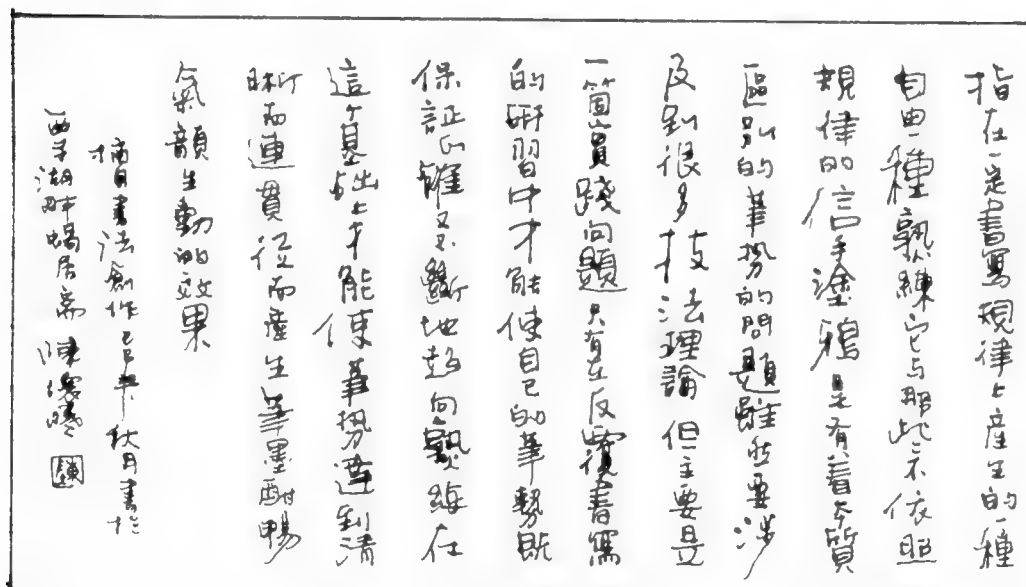 指在一定書寫規律上産生的一種
自由一種熟練它与那此不依照
規律的信手塗鴉是有着本質
區别的筆勢的問題雖然要涉
及到很多技法理論但主要是
一箇實踐问題只有在反覆書寫
的研習中才能使自己的筆勢既
保証正確又不斷地趋向熟練在
這个基础上才能使筆勢達到清
晰而連貫從而產生筆墨酣暢
氣韻生動的效果
摘自書法創作己巳年秋月書於
西子湖畔蝸居斋 陳